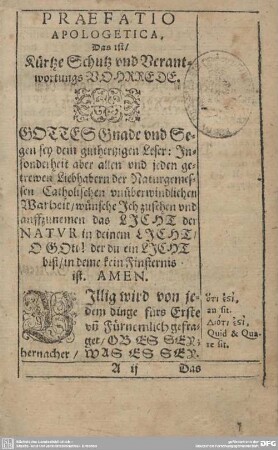 PRAEFATIO
APOLOGETICA,
Das ist/
Kürtze Schutz vnd Verant-
wortungs VOHRREDE.
GOTTES Gnade vnd Se-
gen sey dem gutherzigen Leser: In-
sonderheit aber allen vnd jeden ge-
trewen Liebhabern der Naturgemes-
sen Catholischen vnüberwindlichen
Warheit/ wünsche Ich zusehen vnd
auffzunemen das LICHT der
NATVR in deinem LICHT/
O GOtt! der du ein LICHT
bist/ in deme kein Finsternis
ist. AMEN.
BIllig wird von je-
dem dinge fürs Erste
vñ Fürnemlich gefra-
get/ OB ES SEY;
hernacher/ WAS ES SEY.
ὅτι ἐστί,
an sit.
Διότι ἐστί,
Quid & Qua-
re sit.
A ij
Das